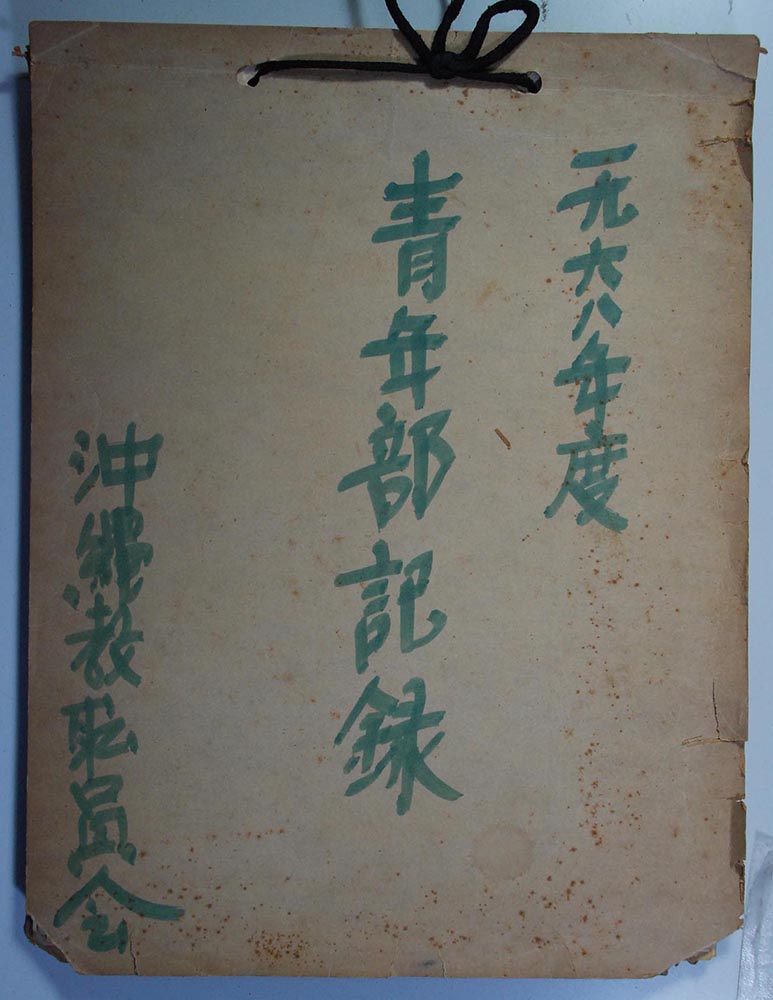 一九六八年度
青年部記録
沖縄教耺員会